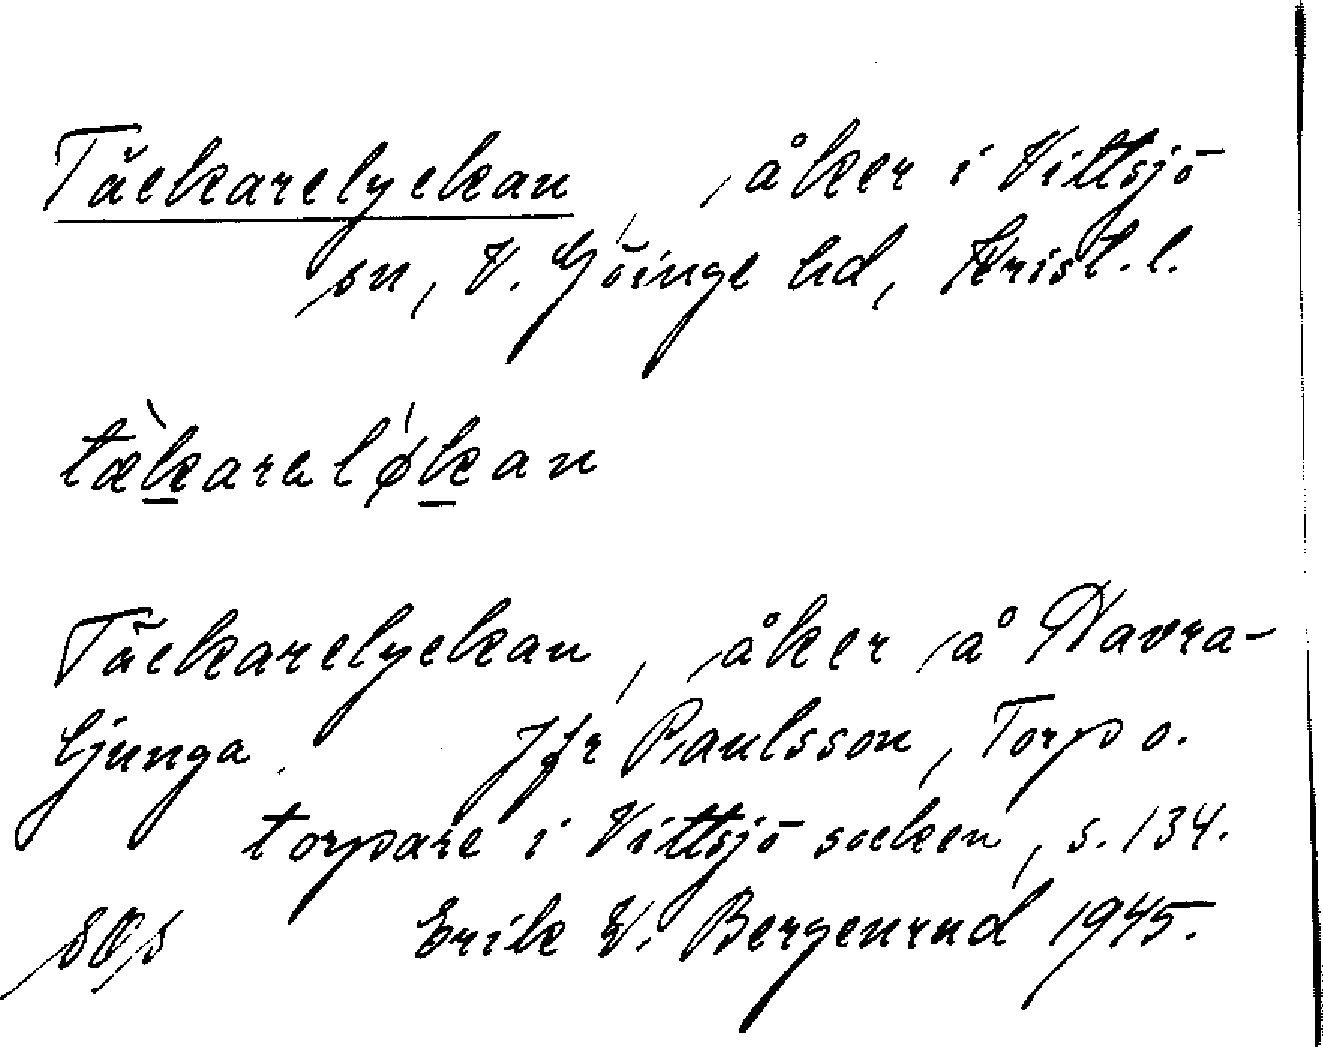 Täckarelyckan, åker i Vittsjö
sn, V. Göinge hd, Krist. l.
tæ̀k̲araløḱ̲an
Täckarelyckan, åker å Havra-
ljunga. Jfr Paulsson, Torp o.
torpare i Vittsjö socken, s. 134.
Erik V. Bergenrud 1945.